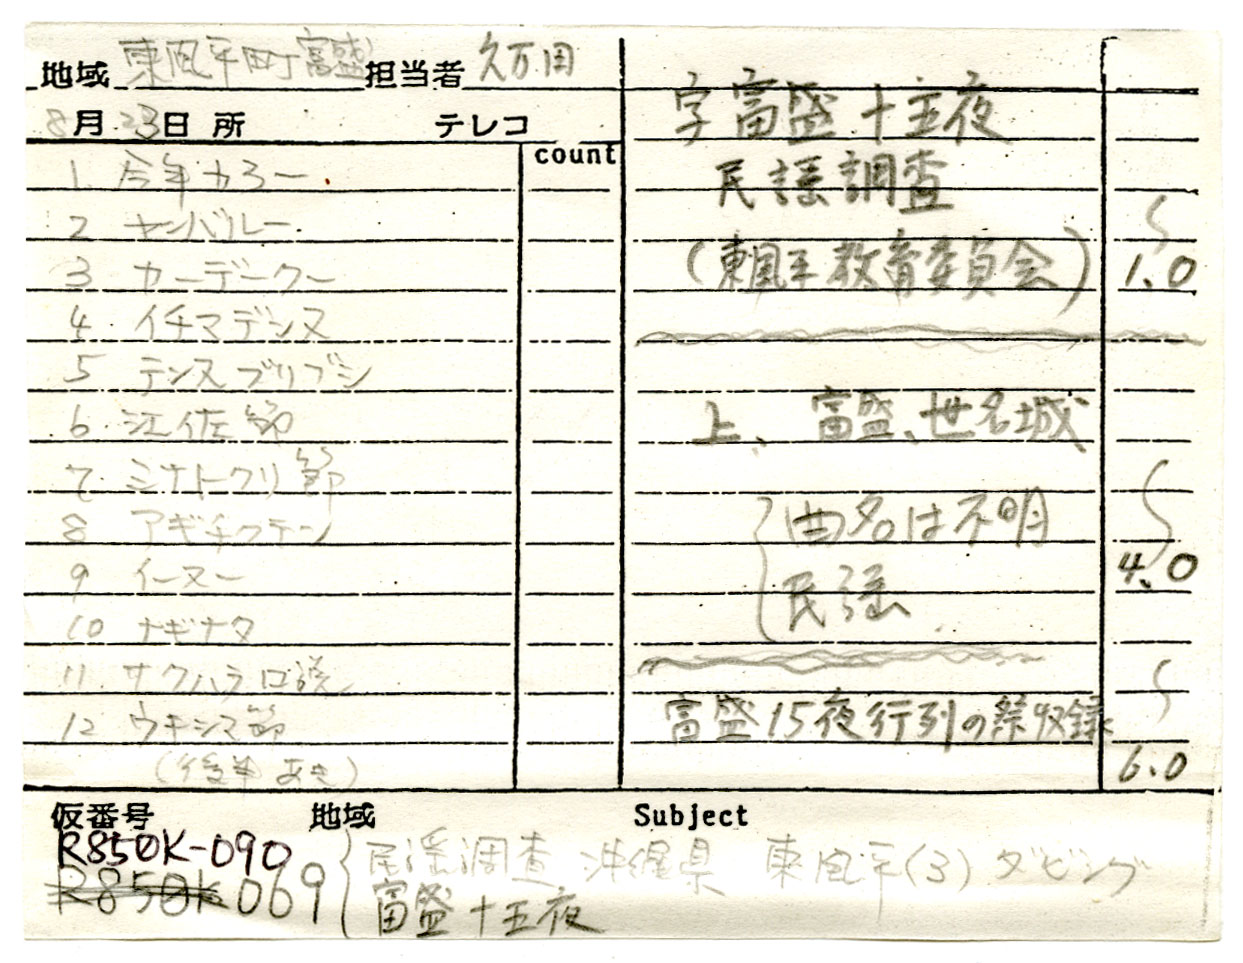 地域 東風平町富盛 担当者 久万田
8月23日 所 テレコ
count
1. 今年カろー
2 ヤンバルー
3 カーデークー
4. イチマデンヌ
5 テンヌブリブシ
6. 江佐節
7. ミナトークリ節
8 アギチクテン
9 イーヌー
10 ナギナタ
11. サクハラ口説
12 ウキシマ節
(後半あき)
字富盛十五夜
民謡調査
(東風平教育委員会)
1.0
上、富盛、世名城
曲名は不明
民謡
4.0
富盛15夜行列の祭収録
6.0
仮番号 地域 Subject
R850K-090
R850K069
民謡調査 沖縄県 東風平(3) ダビング
富盛十五夜